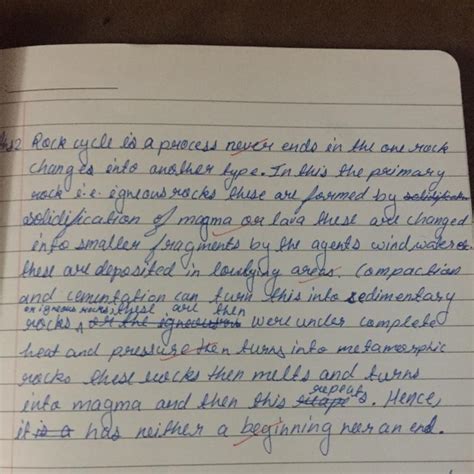 Ans2 Rock cycle is a process never ends in the one rock
changes into another type. In this the primary
rock i.e. igneous rocks these are formed by
solidification of magma or lava these are changed
into smaller fragments by the agents wind water
these are deposited in lowlying areas. Compaction
and cementation can turn this into sedimentary
or igneous rocks, these are then
rocks, or the igneous were under complete
heat and pressure then turns into metamorphic
rocks these rocks then melts and turns
repeats
into magma and then this. Hence,
it is a has neither a beginning nor an end.